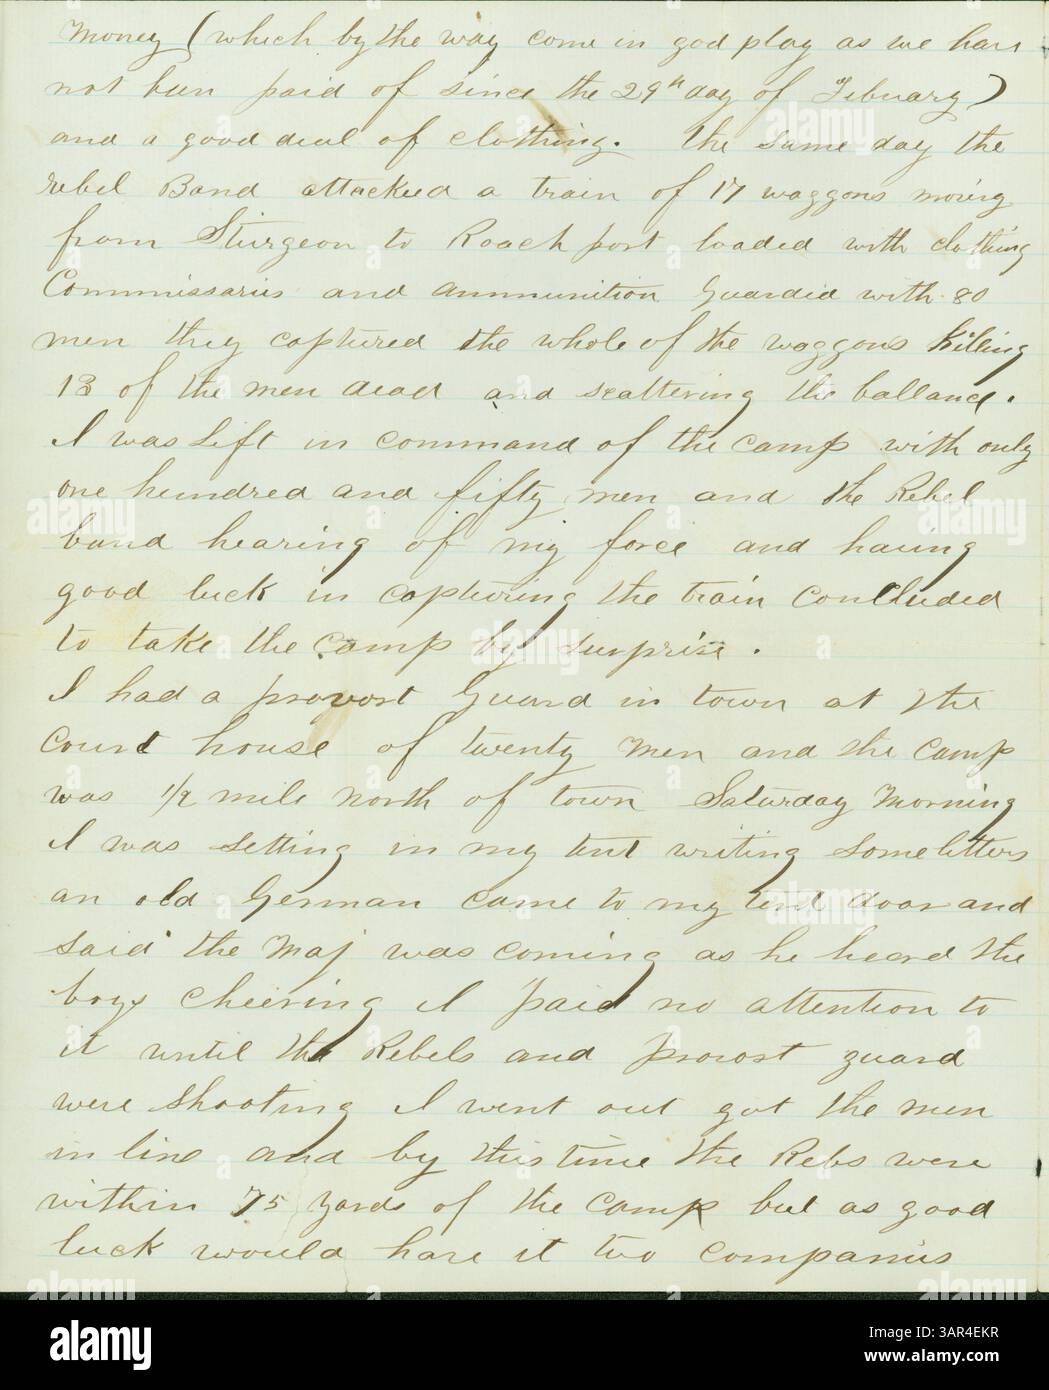 Money (which by the way come in god play as we have
not been paid of since the 29th day of Febuary)
and a good deal of clothing. The same day the
rebel Band attacked a train of 17 waggons moving
from Sturgeon to Roach port loaded with clothing
Commissaries and ammunition Guarded with 80
men they captured the whole of the waggons killing
13 of the men dead and scattering the ballance.
I was left in command of the camp with only
one hundred and fifty men and the Rebel
band hearing of my force and having
good luck in capturing the train concluded
to take the camp by surprise.
I had a provost Guard in town at the
Court house of twenty men and the camp
was 1/2 mile north of town Saturday Morning
I was setting in my tent writing some letters
an old German came to my tent door and
said the Maj was coming as he heard the
boys cheering I paid no attention to
it until the Rebels and provost guard
were shooting I went out got the men
in line and by this time the Rebs were
within 75 yards of the camp but as good
luck would have it two companies
alamy
Image ID: 3AR4EKR
www.alamy.com